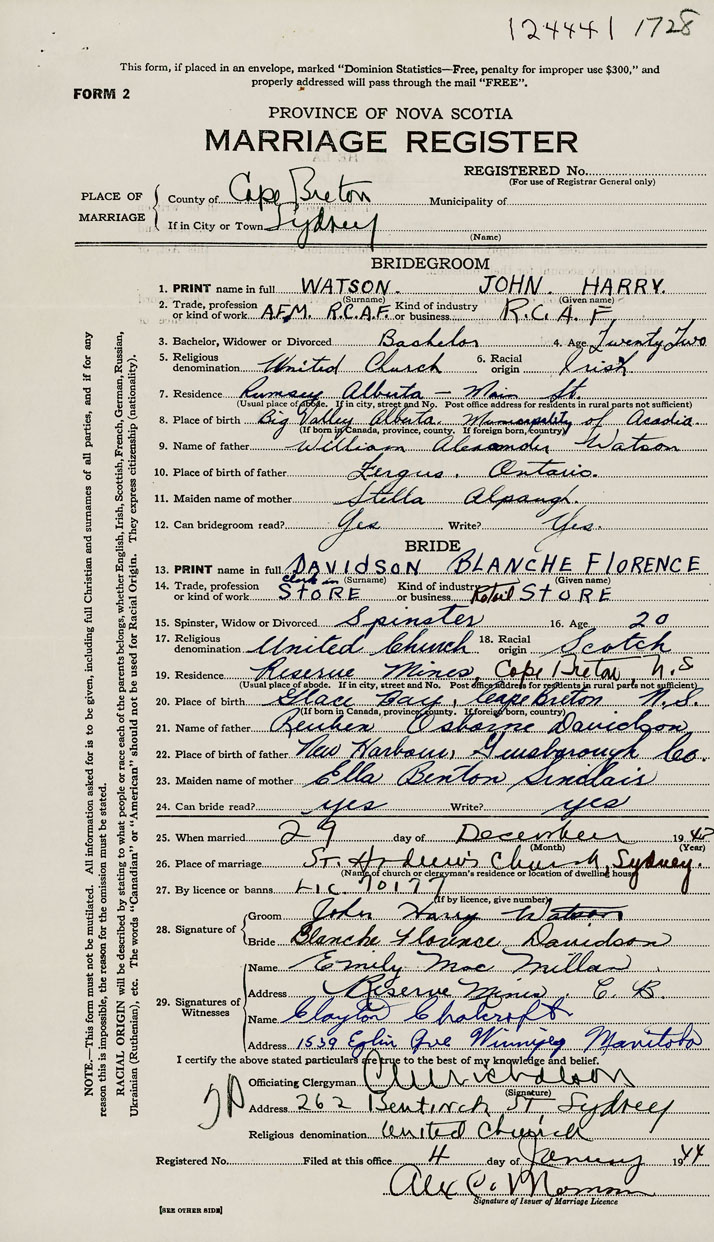 124441 1728
This form, if placed in an envelope, marked "Dominion Statistics—Free, penalty for improper use $300," and
properly addressed will pass through the mail "FREE".
FORM 2
PROVINCE OF NOVA SCOTIA
MARRIAGE REGISTER
REGISTERED No.
(For use of Registrar General only)
PLACE OF MARRIAGE
County of Cape Breton Municipality of
If in City or Town Sydney
(Name)
BRIDEGROOM
1. PRINT name in full WATSON. JOHN HARRY.
(Surname) (Given name)
2. Trade, profession or kind of work A.F.M. R.C.A.F. Kind of industry or business R.C.A.F.
3. Bachelor, Widower or Divorced Bachelor 4. Age Twenty Two
5. Religious denomination United Church 6. Racial origin Irish
7. Residence Rumsey Alberta — Main St.
(Usual place of abode. If in city, street and No. Post office address for residents in rural parts not sufficient)
8. Place of birth Big Valley Alberta. Municipality of Acadia.
(If born in Canada, province, county. If foreign born, country)
9. Name of father William Alexander Watson
10. Place of birth of father Fergus. Ontario.
11. Maiden name of mother Stella Alpaugh.
12. Can bridegroom read? Yes Write? Yes.
BRIDE
13. PRINT name in full DAVIDSON BLANCHE FLORENCE
(Surname) (Given name)
14. Trade, profession or kind of work clerk in STORE Kind of industry or business Retail STORE
15. Spinster, Widow or Divorced Spinster 16. Age 20
17. Religious denomination United Church 18. Racial origin Scotch
19. Residence Reserve Mines, Cape Breton, N.S
(Usual place of abode. If in city, street and No. Post office address for residents in rural parts not sufficient)
20. Place of birth Glace Bay, Cape Breton N.S.
(If born in Canada, province, county. If foreign born, country)
21. Name of father Reuben Osborne Davidson
22. Place of birth of father New Harbour, Guysborough Co.
23. Maiden name of mother Ella Benton Sinclair
24. Can bride read? yes Write? yes
25. When married 29 day of December 19
(Month) (Year)
26. Place of marriage St. Andrew's Church, Sydney.
(Name of church or clergyman's residence or location of dwelling house)
27. By licence or banns Lic. 70177
(If by licence, give number)
28. Signature of Groom John Harry Watson
Bride Blanche Florence Davidson
29. Signatures of Witnesses
Name Emily Mac Millan
Address Reserve Mines C. B.
Name Clayton Chalcroft
Address 1539 Elgin Ave Winnipeg Manitoba
I certify the above stated particulars are true to the best of my knowledge and belief.
Officiating Clergyman
(Signature)
Address 262 Bentinck St Sydney
Religious denomination United Church
Registered No. Filed at this office 4 day of January 1944
Signature of Issuer of Marriage Licence
[SEE OTHER SIDE]
NOTE.—This form must not be mutilated. All information asked for is to be given, including full Christian and surnames of all parties, and if for any
reason this is impossible, the reason for the omission must be stated.
RACIAL ORIGIN will be described by stating to what people or race each of the parents belongs, whether English, Irish, Scottish, French, German, Russian,
Ukrainian (Ruthenian), etc. The words "Canadian" or "American" should not be used for Racial Origin. They express citizenship (nationality).